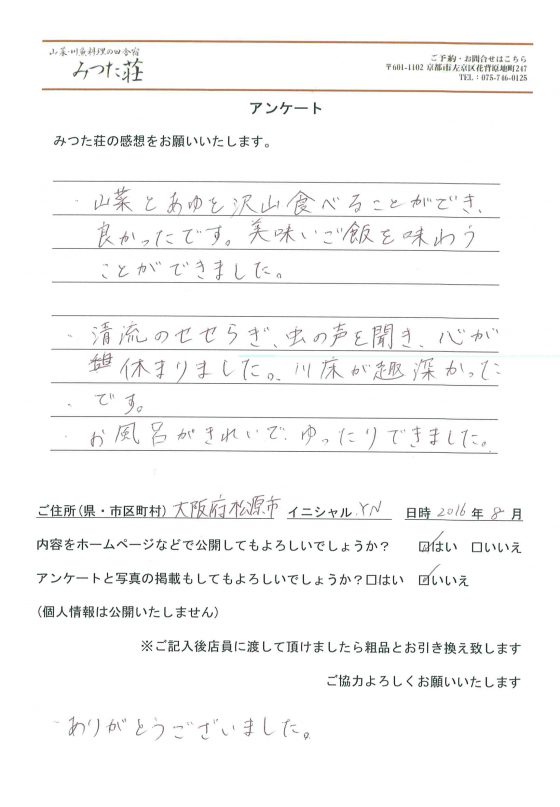 山菜・川魚料理の田舎宿
みつた荘
ご予約・お問合せはこちら
〒601-1102 京都市左京区花脊原地町247
TEL：075-746-0125
アンケート
みつた荘の感想をお願いいたします。
・山菜とあゆを沢山食べることができ、
良かったです。美味いご飯を味わう
ことができました。
・清流のせせらぎ、虫の声を聞き、心が
休まりました。川床が趣深かった
です。
・お風呂がきれいで、ゆったりできました。
ご住所(県・市区町村) 大阪府松原市 イニシャル YN 日時 2016年8月
内容をホームページなどで公開してもよろしいでしょうか？ ☑はい □いいえ
アンケートと写真の掲載もしてもよろしいでしょうか？□はい ☑いいえ
(個人情報は公開いたしません)
※ご記入後店員に渡して頂けましたら粗品とお引き換え致します
ご協力よろしくお願いいたします
ありがとうございました。